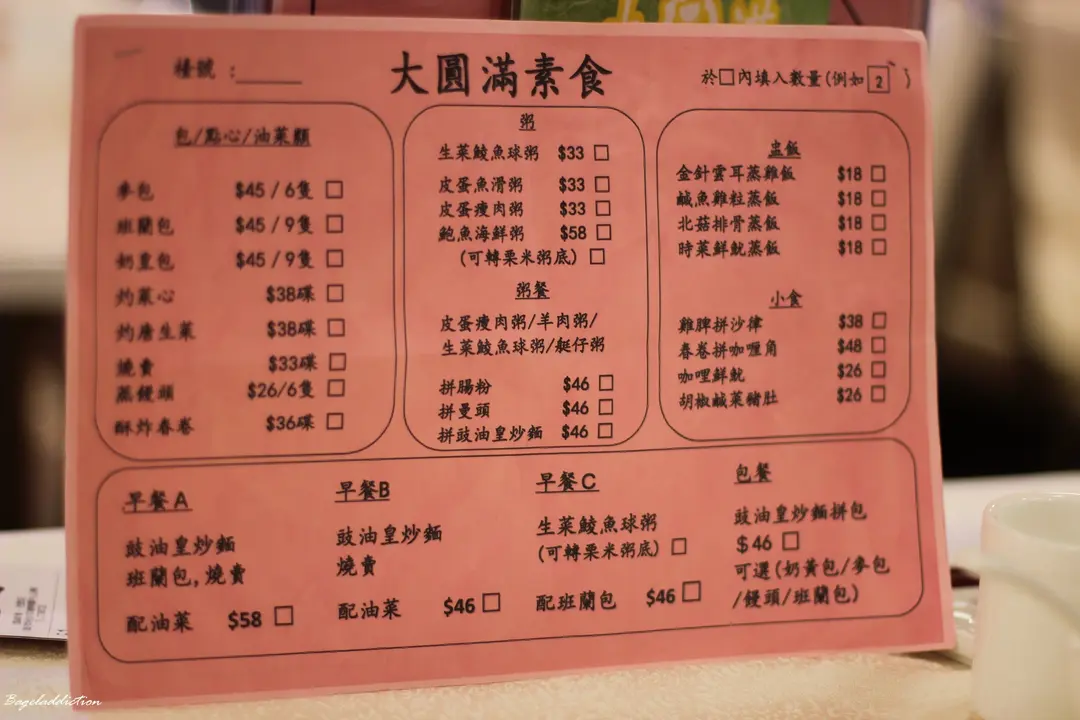 檯號：
大圓滿素食
於□內填入數量(例如 2 )
包/點心/油菜類
麥包 $45 / 6隻 □
班蘭包 $45 / 9隻 □
奶皇包 $45 / 9隻 □
灼菜心 $38碟 □
灼唐生菜 $38碟 □
燒賣 $33碟 □
蒸饅頭 $26/6隻 □
酥炸春卷 $36碟 □
粥
生菜鯪魚球粥 $33 □
皮蛋魚滑粥 $33 □
皮蛋瘦肉粥 $33 □
鮑魚海鮮粥 $58 □
(可轉栗米粥底) □
粥餐
皮蛋瘦肉粥/羊肉粥/
生菜鯪魚球粥/艇仔粥
拼腸粉 $46 □
拼曼頭 $46 □
拼豉油皇炒麵 $46 □
盅飯
金針雲耳蒸雞飯 $18 □
鹹魚雞粒蒸飯 $18 □
北菇排骨蒸飯 $18 □
時菜鮮魷蒸飯 $18 □
小食
雞脾拼沙律 $38 □
春卷拼咖喱角 $48 □
咖哩鮮魷 $26 □
胡椒鹹菜豬肚 $26 □
早餐A
豉油皇炒麵
班蘭包,燒賣
配油菜 $58 □
早餐B
豉油皇炒麵
燒賣
配油菜 $46 □
早餐C
生菜鯪魚球粥
(可轉栗米粥底) □
配班蘭包 $46 □
包餐
豉油皇炒麵拼包
$46 □
可選(奶黃包/麥包
/饅頭/班蘭包)
Bageladdiction